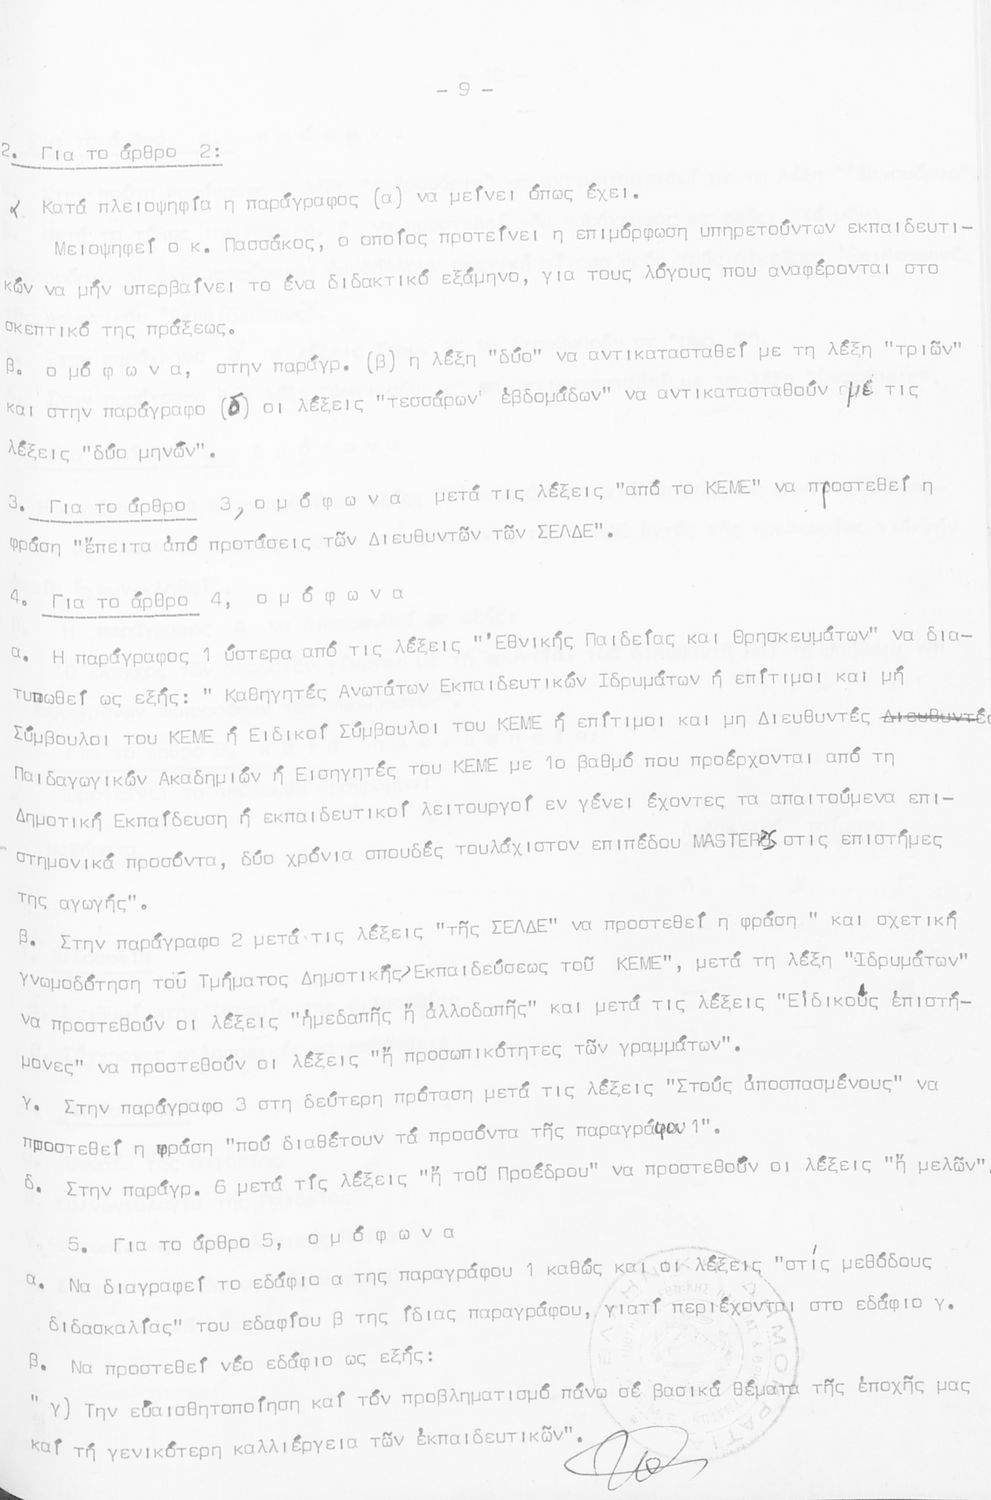 - 9 -
2. Για το άρθρο 2:
α. Κατά πλειοψηφία η παράγραφος (α) να μείνει όπως έχει.
Μειοψηφεί ο κ. Πασσάκος, ο οποίος προτείνει η επιμόρφωση υπηρετούντων εκπαιδευτι-
κών να μήν υπερβαίνει το ένα διδακτικό εξάμηνο, για τους λόγους που αναφέρονται στο
σκεπτικό της πράξεως.
β. ο μ ό φ ω ν α, στην παράγρ. (β) η λέξη "δύο" να αντικατασταθεί με τη λέξη "τριῶν"
και στην παράγραφο (δ) οι λέξεις "τεσσάρων ἑβδομάδων" να αντικατασταθούν μέ τις
λέξεις "δύο μηνῶν".
3. Για το άρθρο 3, ο μ ό φ ω ν α μετά τις λέξεις "από το ΚΕΜΕ" να προστεθεί η
φράση "ἔπειτα ἀπό προτάσεις τῶν Διευθυντῶν τῶν ΣΕΛΔΕ".
4. Για το άρθρο 4, ο μ ό φ ω ν α
α. Η παράγραφος 1 ύστερα από τις λέξεις "'Εθνικής Παιδείας και Θρησκευμάτων" να δια-
τυπωθεί ως εξής: " Καθηγητές Ανωτάτων Εκπαιδευτικών Ιδρυμάτων ή επίτιμοι και μή
Σύμβουλοι του ΚΕΜΕ ή Ειδικοί Σύμβουλοι του ΚΕΜΕ ή επίτιμοι και μη Διευθυντές Διευθυντές
Παιδαγωγικών Ακαδημιών ή Εισηγητές του ΚΕΜΕ με 1ο βαθμό που προέρχονται από τη
Δημοτική Εκπαίδευση ή εκπαιδευτικοί λειτουργοί εν γένει έχοντες τα απαιτούμενα επι-
στημονικά προσόντα, δύο χρόνια σπουδές τουλάχιστον επιπέδου MASTER στις επιστήμες
της αγωγής".
β. Στην παράγραφο 2 μετά τις λέξεις "τῆς ΣΕΛΔΕ" να προστεθεί η φράση " και σχετική
γνωμοδότηση τοῦ Τμήματος Δημοτικῆς Εκπαιδεύσεως τοῦ ΚΕΜΕ", μετά τη λέξη "Ἱδρυμάτων"
να προστεθούν οι λέξεις "ἡμεδαπῆς ἤ ἀλλοδαπῆς" και μετά τις λέξεις "Εἰδικούς ἐπιστή-
μονες" να προστεθούν οι λέξεις "ἤ προσωπικότητες τῶν γραμμάτων".
γ. Στην παράγραφο 3 στη δεύτερη πρόταση μετά τις λέξεις "Στούς ἀποσπασμένους" να
προστεθεί η φράση "πού διαθέτουν τά προσόντα τῆς παραγράφου 1".
δ. Στην παράγρ. 6 μετά τίς λέξεις "ἤ τοῦ Προέδρου" να προστεθοῦν οι λέξεις "ἤ μελῶν".
5. Για το άρθρο 5, ο μ ό φ ω ν α
α. Να διαγραφεί το εδάφιο α της παραγράφου 1 καθώς και οι λέξεις "στίς μεθόδους
διδασκαλίας" του εδαφίου β της ίδιας παραγράφου, γιατί περιέχονται στο εδάφιο γ.
β. Να προστεθεί νέο εδάφιο ως εξής:
" γ) Την εὐαισθητοποίηση καί τόν προβληματισμό πάνω σέ βασικά θέματα τῆς ἐποχῆς μας
καί τή γενικότερη καλλιέργεια τῶν ἐκπαιδευτικῶν".